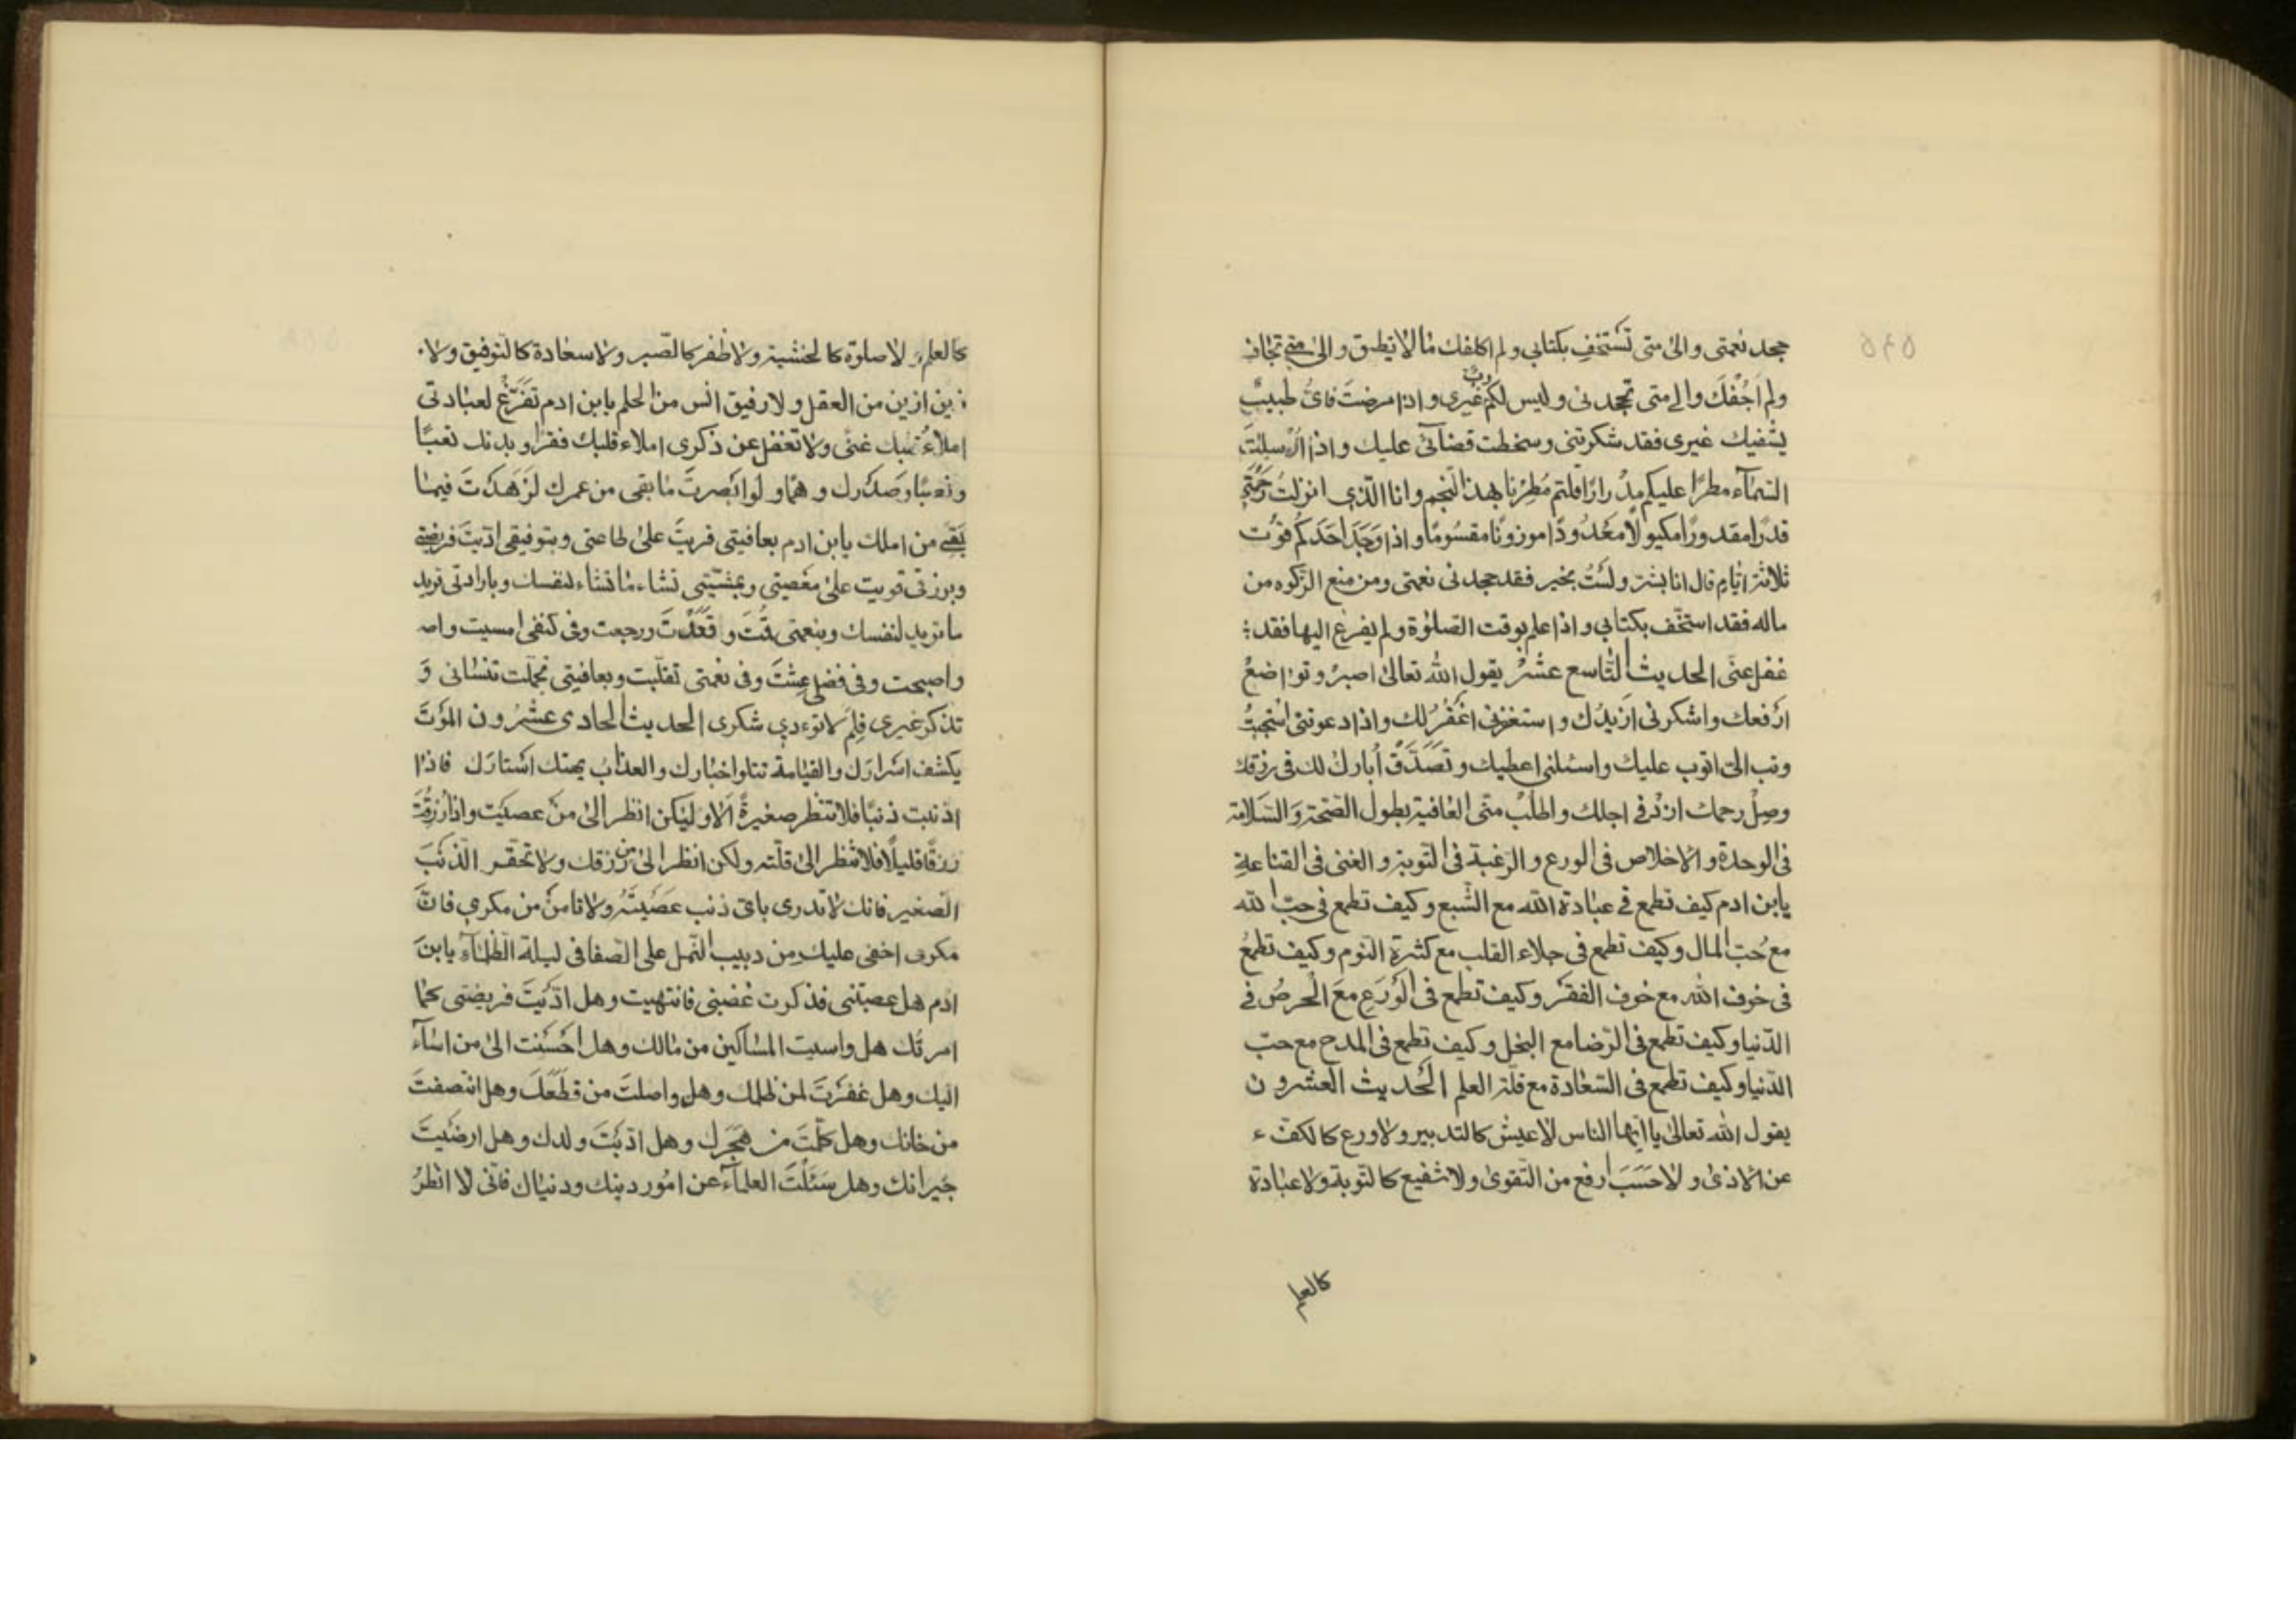 ٥٤٥
جحد نعمتى والى متى تستخف بكتابى ولم اكلفك مالا تطيق والى متى تجافى
ولم اجفك والى متى تجحدنى وليس لكم رب غيرى واذا مرضت فاىّ طبيب
يشفيك غيرى فقد شكرتنى وسخطت قضآئى عليك واذا ارسلت
السمآء مطرًا عليكم مدرارًا قلتم مُطِرنا بهذا النجم وانا الذى انزلت رحمتى
قدرًا مقدورًا مكيولًا معدودًا موزونًا مقسومًا واذا وَجَدَ احَدَكُم قوت
ثلاثة ايّام قال انا بشر ولستُ بخير فقد جحدنى نعمتى ومن منع الزكوه من
ماله فقد استخّف بكتابى واذا علم بوقت الصلوٰة ولم يفرغ اليها فقد
غفل عنّى الحديث التاسع عشرْ يقول الله تعالىٰ اصبرْ وتواضعْ
ارفعك واشكرنى ازيدُك واستغفرنى اغفرُ لك واذا دعوتنى استجبتُ
وتب الىّ اتوب عليك واسئلنى اعطيك وتَصَدَّق أُبارك لك فى رزقك
وصِلْ رحمك ازدْ فى اجلك واطلبْ منّى العافية بطول الصّحة والسّلامة
فى الوحدة والاخلاص فى الورع والرّغبة فى التّوبة والغنى فى القناعةِ
يابن ادم كيف تطمع فى عبادة الله مع الشّبع وكيف تطمع فى حبّ الله
مع حُبّ المال وكيف تطمع فى جلاء القلب مع كثرة النّوم وكيف تطمعُ
فى خوف الله مع خوف الفقر وكيف تطمع فى الوَرَعِ معَ الحرصُ فى
الدّنيا وكيف تطمع فى الرّضا مع البخل وكيف تطمع فى المدح مع حبّ
الدّنيا وكيف تطمع فى السّعادة مع قلّة العلم الحديث العشرون
يقول الله تعالى يا ايّها الناس لا عيش كالتدبير ولا ورع كالكفّ ء
عن الاذى ولا حَسَبَ ارفع من التّقوىٰ ولا شفيع كالتوبة ولا عبادة
كالعلم
كالعلم ولا صلوة كالخشية ولا ظفر كالصّبر ولا سعادة كالتوفيق ولا
زين ازين من العقل ولا رفيق انس من الحلم يابن ادم تفرّغْ لعبادتى
املاءُ قلبك غنىً ولا تغفل عن ذكرى املاء قلبك فقرًا وبدنك تعبًا
ونصبًا وصَدْرك وهمًّا ولو ابصرتَ ما بقى من عمرك لزهدتَ فيما
بَقَى من املك يابن ادم بعافيتى قويتَ علىٰ طاعتى وبتوفيقى ادّيتَ فريضتى
وبرزقى قويت علىٰ معصيتى وبمشيّتى تشاء ما تشاء لنفسك وبارادتى تريد
ما تريد لنفسك وبنعمتى قُمْتَ وقَعَدْتَ ورجعت وفى كنفى امسيت واص
واصبحت وفى فضلى عِشْتَ وفى نعمتى تقلّبت وبعافيتى تجمّلت تنسانى وَ
تذكر غيرى فلِمَ لا تؤدى شكرى الحديث الحادى عشرون الموْتَ
يكشف اسْرارَك والقيامة تتلوا اخبارك والعذاب يهتك استارَك فاذا
اذنبت ذنبًا فلا تنظر صغيرةً الا ولٰيكن انظر الىٰ منْ عصيَت واذا رزقتَ
رزقًا قليلًا فلا تنظر الىٰ قلّته ولكن انظر الىٰ من رزقك ولا تحقر الذنبَ
الصّغير فانك لا تدرى باىّ ذنب عَصَيتَهُ ولا تأمنْ من مكرى فانّ
مكرى اخفى عليك من دبيب النّمل على الصّفا فى ليلة الظلمآء يابنَ
ادم هل عصيتنى فذكرت غضبى فانتهيت وهل ادّيتَ فريضتى كما
امرتُك هل واسيت المساكين من مالك وهل احْسَنت الىٰ من اسآء
اليك وهل غفرتَ لمن ظلمك وهل واصلتَ من قطَعَك وهل انصفتَ
من خانك وهل كلّمتَ من هَجَرك وهل ادّبْتَ ولدك وهل ارضيتَ
جيرانك وهل سَئَلْتَ العلمآء عن امُور دينك ودنياك فانّى لا انظرُ